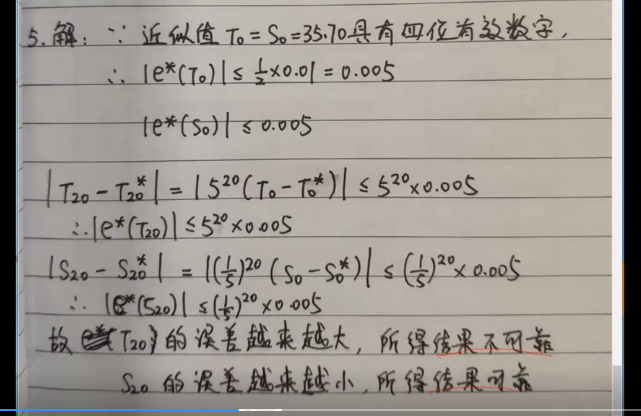 5.解: ∵ 近似值 T₀ = S₀ = 35.70具有四位有效数字,
∴ |e*(T₀)| ≤ ½×0.01 = 0.005
|e*(S₀)| ≤ 0.005
|T₂₀ - T₂₀*| = |5²⁰(T₀ - T₀*)| ≤ 5²⁰×0.005
∴ |e*(T₂₀)| ≤ 5²⁰×0.005
|S₂₀ - S₂₀*| = |(1/5)²⁰ (S₀ - S₀*)| ≤ (1/5)²⁰×0.005
∴ |e*(S₂₀)| ≤ (1/5)²⁰×0.005
故 T₂₀ 的误差越来越大, 所得结果不可靠
S₂₀ 的误差越来越小, 所得结果可靠